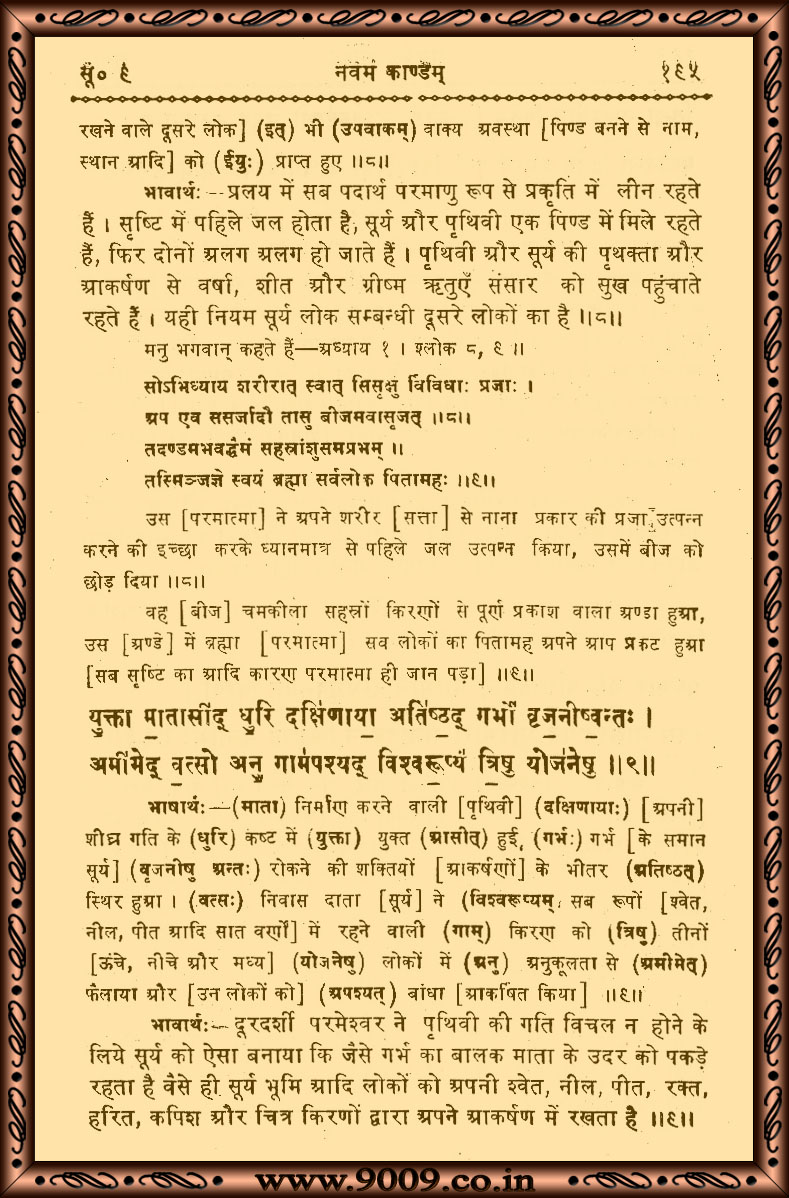 सू० ९ नवमं काण्डम् १९५
रखने वाले दूसरे लोक] (इत्) भी (उपवाकम्) वाक्य अवस्था [पिण्ड बनने से नाम,
स्थान आदि] को (ईयुः) प्राप्त हुए ॥८॥
भावार्थः--प्रलय में सब पदार्थ परमाणु रूप से प्रकृति में लीन रहते
हैं । सृष्टि में पहिले जल होता है, सूर्य और पृथिवी एक पिण्ड में मिले रहते
हैं, फिर दोनों अलग अलग हो जाते हैं । पृथिवी और सूर्य की पृथक्ता और
आकर्षण से वर्षा, शीत और ग्रीष्म ऋतुएँ संसार को सुख पहुंचाते
रहते हैं । यही नियम सूर्य लोक सम्बन्धी दूसरे लोकों का है ॥८॥
मनु भगवान् कहते हैं—अध्याय १ । श्लोक ८, ९ ॥
सोऽभिध्याय शरीरात् स्वात् सिसृक्षु र्विविधाः प्रजाः ।
अप एव ससर्जादौ तासु बीजमवासृजत् ॥८॥
तदण्डमभवद्धैमं सहस्रांशुसमप्रभम् ॥
तस्मिञ्जज्ञे स्वयं ब्रह्मा सर्वलोक पितामहः ॥९॥
उस [परमात्मा] ने अपने शरीर [सत्ता] से नाना प्रकार की प्रजा उत्पन्न
करने की इच्छा करके ध्यानमात्र से पहिले जल उत्पन्न किया, उसमें बीज को
छोड़ दिया ॥८॥
वह [बीज] चमकीला सहस्रों किरणों से पूर्ण प्रकाश वाला अण्डा हुआ,
उस [अण्डे] में ब्रह्मा [परमात्मा] सब लोकों का पितामह अपने आप प्रकट हुआ
[सब सृष्टि का आदि कारण परमात्मा ही जान पड़ा] ॥९॥
यु॒क्ता मा॒तासी॑द् धु॒रि दक्षि॑णाया॒ अति॑ष्ठ॒द् गर्भो॑ वृज॒नीष्व॒न्तः ।
अमी॑मेद् व॒त्सो अनु॒ गाम॑पश्यद् विश्वरू॒प्यं॑ त्रि॒षु योज॑नेषु ॥९॥
भाषार्थः—(माता) निर्माण करने वाली [पृथिवी] (दक्षिणायाः) [अपनी]
शीघ्र गति के (धुरि) कष्ट में (युक्ता) युक्त (आसीत्) हुई, (गर्भः) गर्भ [के समान
सूर्य] (वृजनीषु अन्तः) रोकने की शक्तियों [आकर्षणों] के भीतर (अतिष्ठत्)
स्थिर हुआ । (वत्सः) निवास दाता [सूर्य] ने (विश्वरूप्यम्) सब रूपों [श्वेत,
नील, पीत आदि सात वर्णों] में रहने वाली (गाम्) किरण को (त्रिषु) तीनों
[ऊंचे, नीचे और मध्य] (योजनेषु) लोकों में (अनु) अनुकूलता से (अमीमेत्)
फैलाया और [उन लोकों को] (अपश्यत्) बांधा [आकर्षित किया] ॥९॥
भावार्थः—दूरदर्शी परमेश्वर ने पृथिवी की गति विचल न होने के
लिये सूर्य को ऐसा बनाया कि जैसे गर्भ का बालक माता के उदर को पकड़े
रहता है वैसे ही सूर्य भूमि आदि लोकों को अपनी श्वेत, नील, पीत, रक्त,
हरित, कपिश और चित्र किरणों द्वारा अपने आकर्षण में रखता है ॥९॥
www.9009.co.in